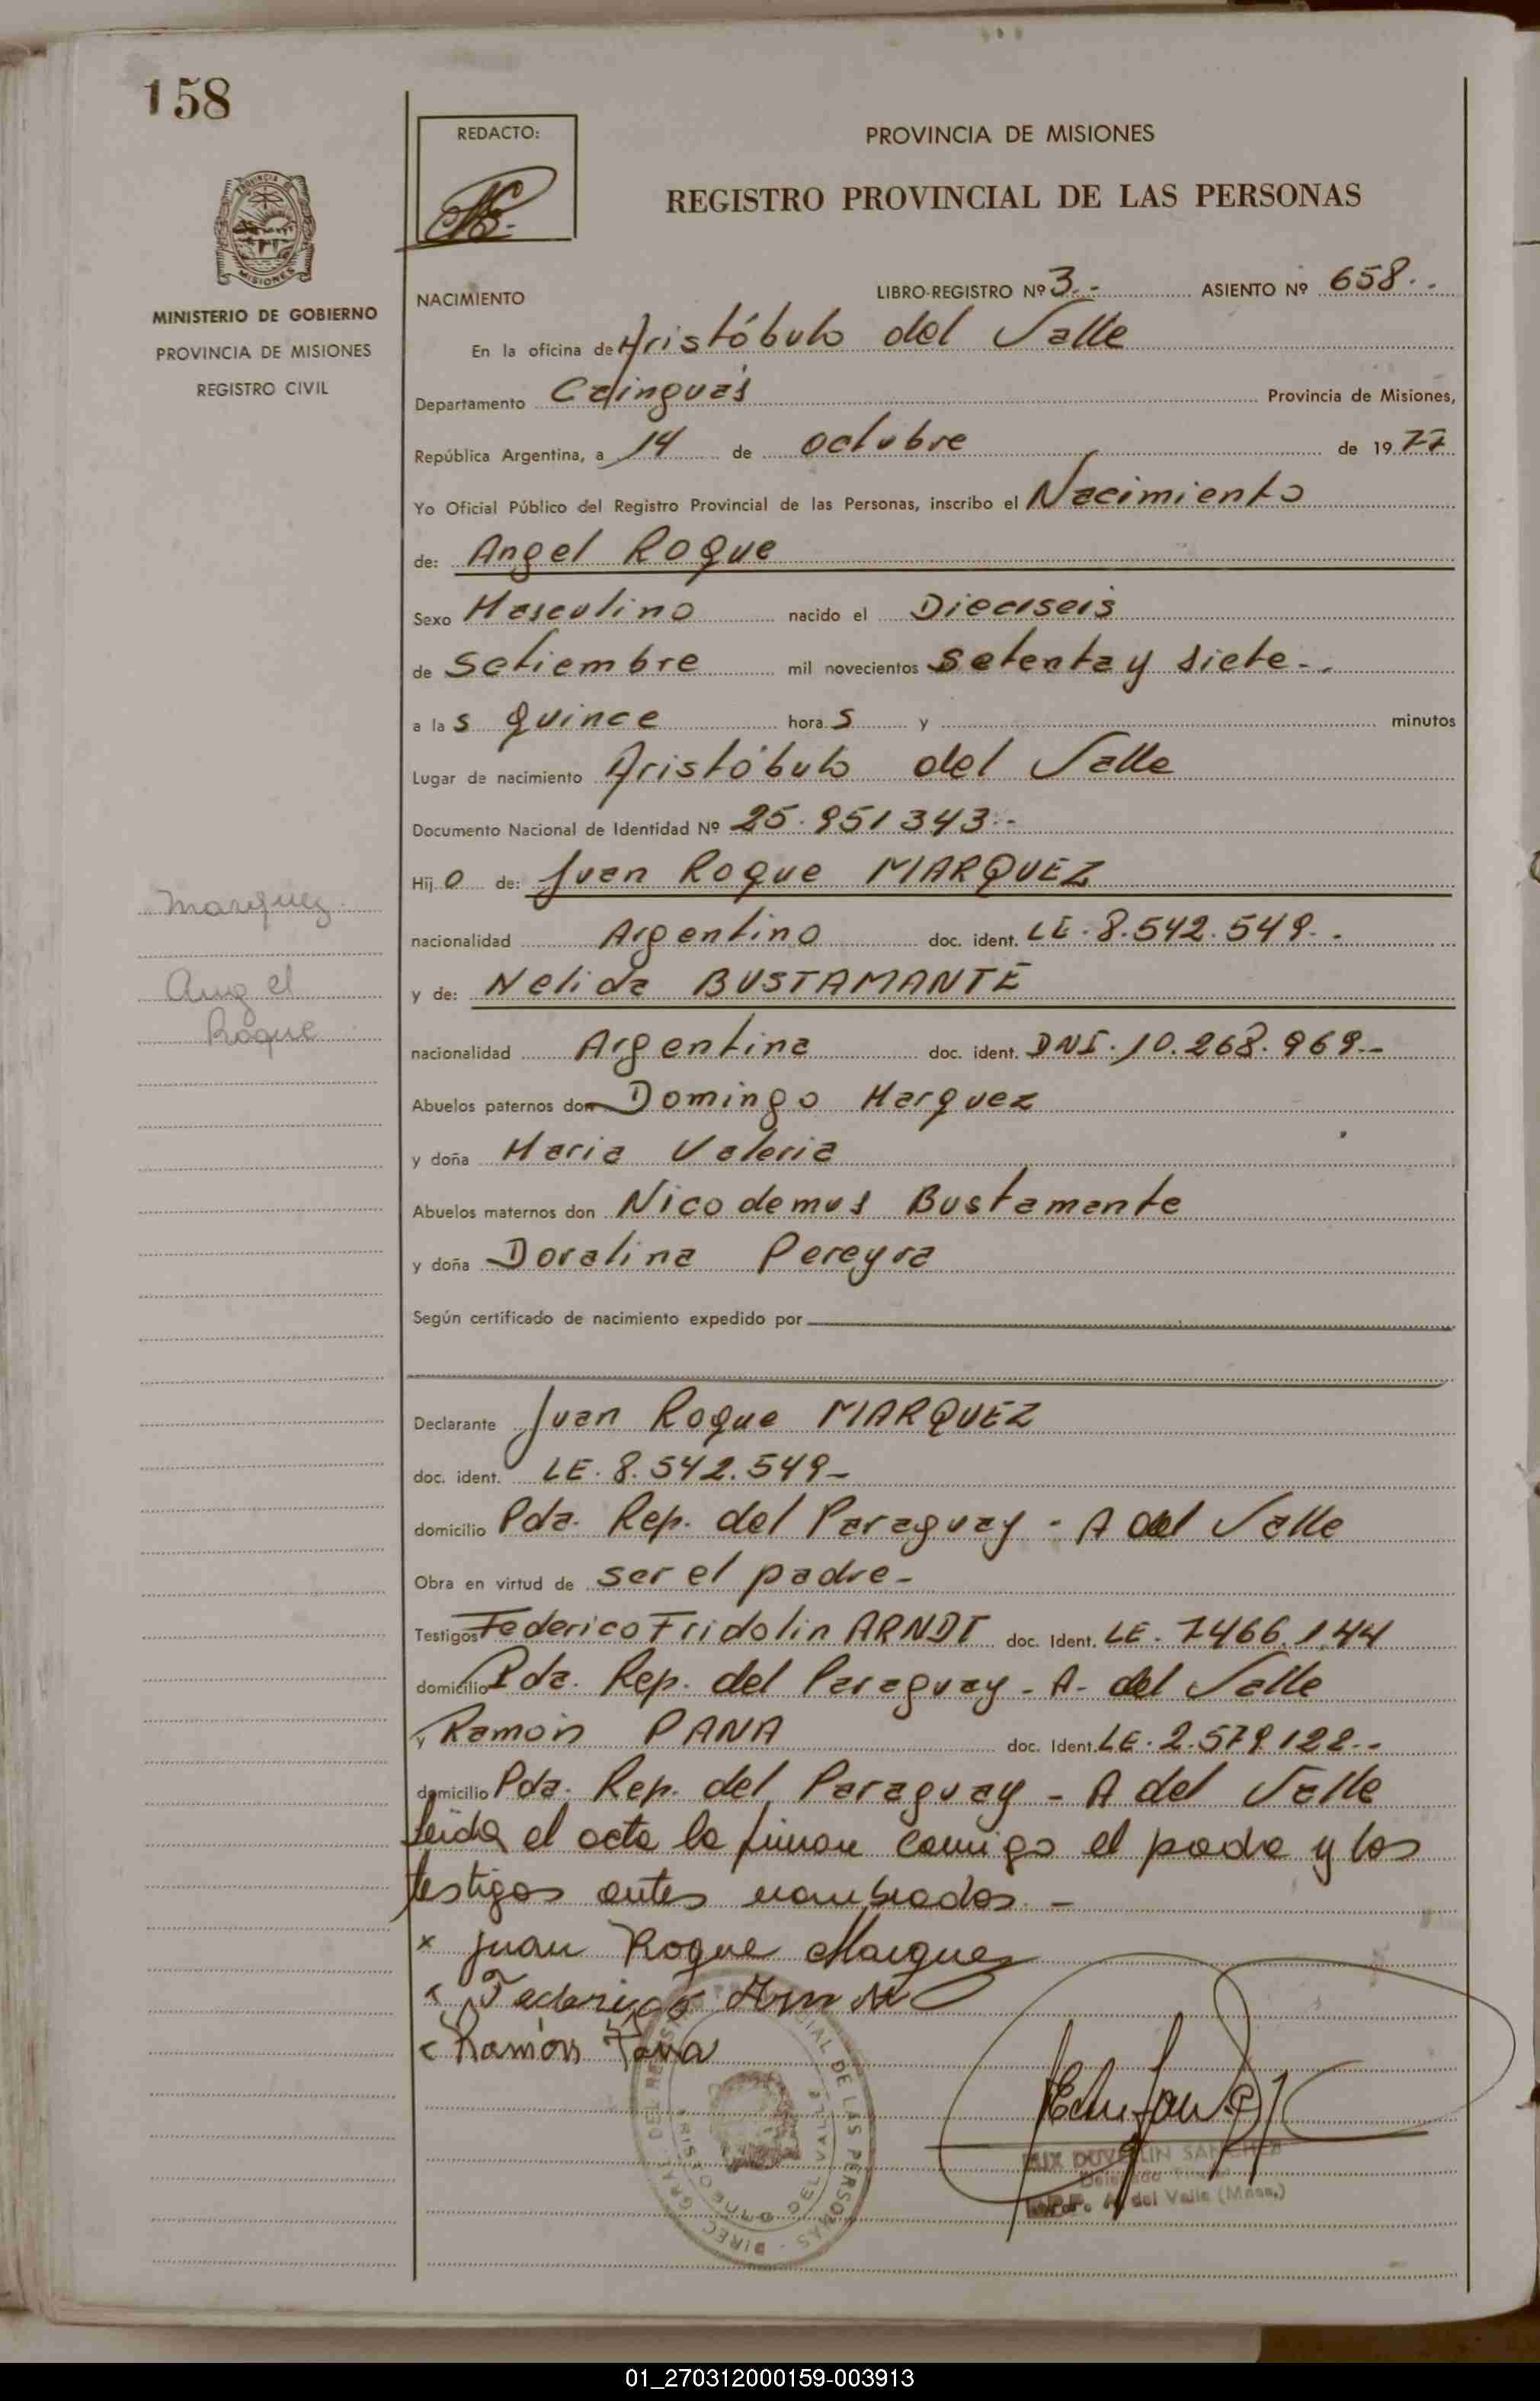 158
REDACTO:
PROVINCIA DE MISIONES
REGISTRO PROVINCIAL DE LAS PERSONAS
PROVINCIA DE
MISIONES
MINISTERIO DE GOBIERNO
PROVINCIA DE MISIONES
REGISTRO CIVIL
NACIMIENTO LIBRO-REGISTRO Nº 3.- ASIENTO Nº 658.-
En la oficina de Aristóbulo del Valle
Departamento Cainguás Provincia de Misiones,
República Argentina, a 14 de octubre de 1977
Yo Oficial Público del Registro Provincial de las Personas, inscribo el Nacimiento
de: Angel Roque
Sexo Masculino nacido el Dieciseis
de Setiembre mil novecientos setenta y siete.-
a las quince horas y minutos
Lugar de nacimiento Aristóbulo del Valle
Documento Nacional de Identidad Nº 25.951343.-
Hijo de: Juan Roque MARQUEZ
nacionalidad Argentino doc. ident. LE.8.542.549.-
y de: Nelida BUSTAMANTE
nacionalidad Argentina doc. ident. DNI.10.268.969.-
Abuelos paternos don Domingo Marquez
y doña Maria Valeria
Abuelos maternos don Nicodemus Bustamante
y doña Doralina Pereyra
Según certificado de nacimiento expedido por
Marquez
Angel
Roque
Declarante Juan Roque MARQUEZ
doc. ident. LE.8.542.549-
domicilio Pda. Rep. del Paraguay - A del Valle
Obra en virtud de ser el padre-
Testigos Federico Fridolin ARNDT doc. Ident. LE. 7466.144
domicilio Pda. Rep. del Paraguay - A- del Valle
y Ramón PANA doc. Ident. LE.2.579.122.-
domicilio Pda. Rep. del Paraguay - A del Valle
Leida el acta la firman conmigo el padre y los
testigos antes nombrados.-
x Juan Roque Marquez
Federico Arndt
Ramón Pana
DIREC. GRAL. DEL REGISTRO PROVINCIAL DE LAS PERSONAS
DEL VALLE
SANCHEZ
A. del Valle (Mnes.)
01_270312000159-003913